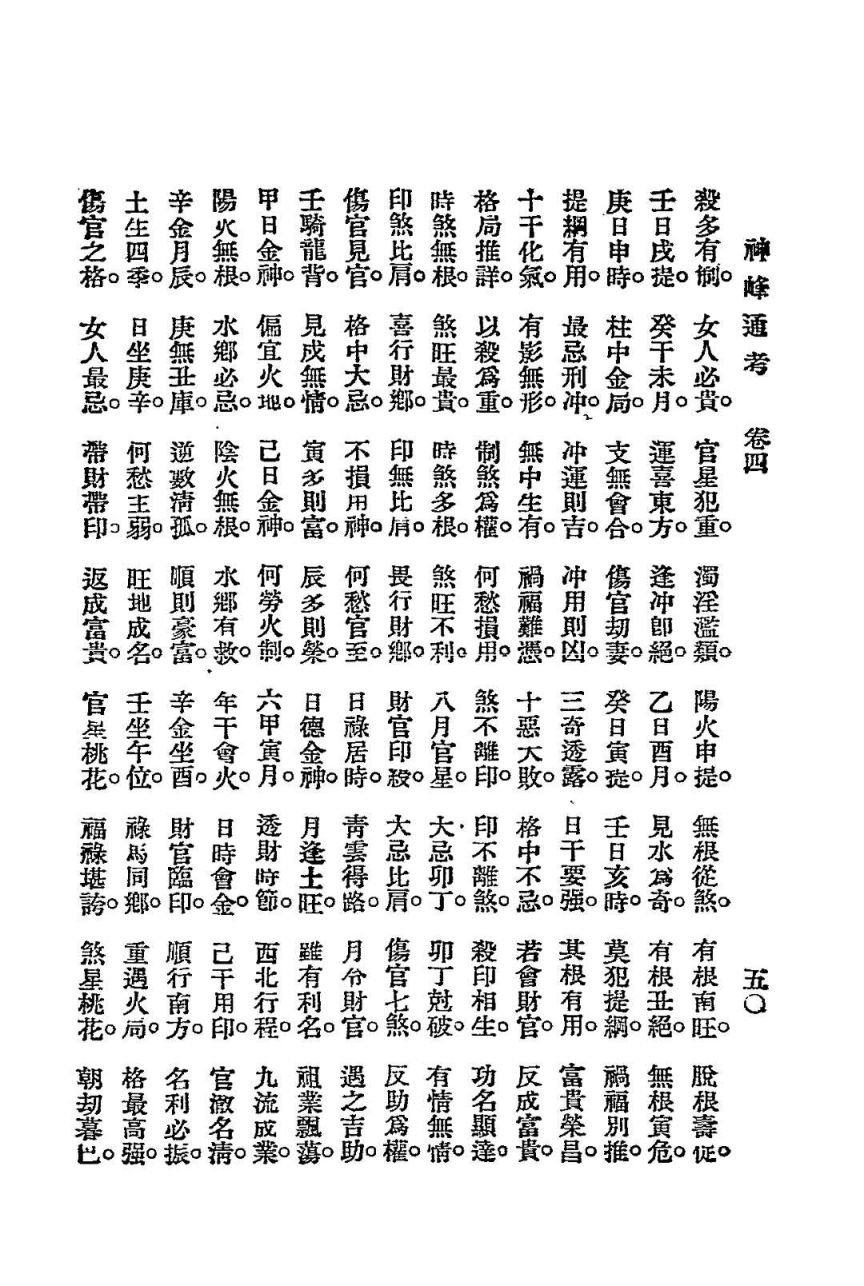 神峰通考　卷四　五〇
殺多有制。女人必貴。官星犯重。濁淫濫類。陽火申提。無根從煞。有根南旺。脫根壽促。
壬日戌提。癸干未月。運喜東方。逢冲卽絕。乙日酉月。見水爲奇。有根丑絕。無根寅危。
庚日申時。柱中金局。支無會合。傷官劫妻。癸日寅提。壬日亥時。莫犯提綱。禍福別推。
提綱有用。最忌刑冲。冲運則吉。冲用則凶。三奇透露。日干要强。其根有用。富貴榮昌。
十干化氣。有影無形。無中生有。禍福難憑。十惡大敗。格中不忌。若會財官。反成富貴。
格局推詳。以殺爲重。制煞爲權。何愁損用。煞不離印。印不離煞。殺印相生。功名顯達。
時煞無根。煞旺最貴。時煞多根。煞旺不利。八月官星。大忌卯丁。卯丁尅破。有情無情。
印煞比肩。喜行財鄉。印無比肩。畏行財鄉。財官印殺。大忌比肩。傷官七煞。反助爲權。
傷官見官。格中大忌。不損用神。何愁官至。日祿居時。靑雲得路。月令財官。遇之吉助。
壬騎龍背。見戌無情。寅多則富。辰多則榮。日德金神。月逢土旺。雖有利名。祖業飄蕩。
甲日金神。偏宜火地。己日金神。何勞火制。六甲寅月。透財時節。西北行程。九流成業。
陽火無根。水鄉必忌。陰火無根。水鄉有救。年干會火。日時會金。己干用印。官澈名淸。
辛金月辰。庚無丑庫。逆數淸孤。順則豪富。辛金坐酉。財官臨印。順行南方。名利必振。
土生四季。日坐庚辛。何愁主弱。旺地成名。壬坐午位。祿馬同鄉。重遇火局。格最高强。
傷官之格。女人最忌。帶財帶印。返成富貴。官星桃花。福祿堪誇。煞星桃花。朝劫暮巴。